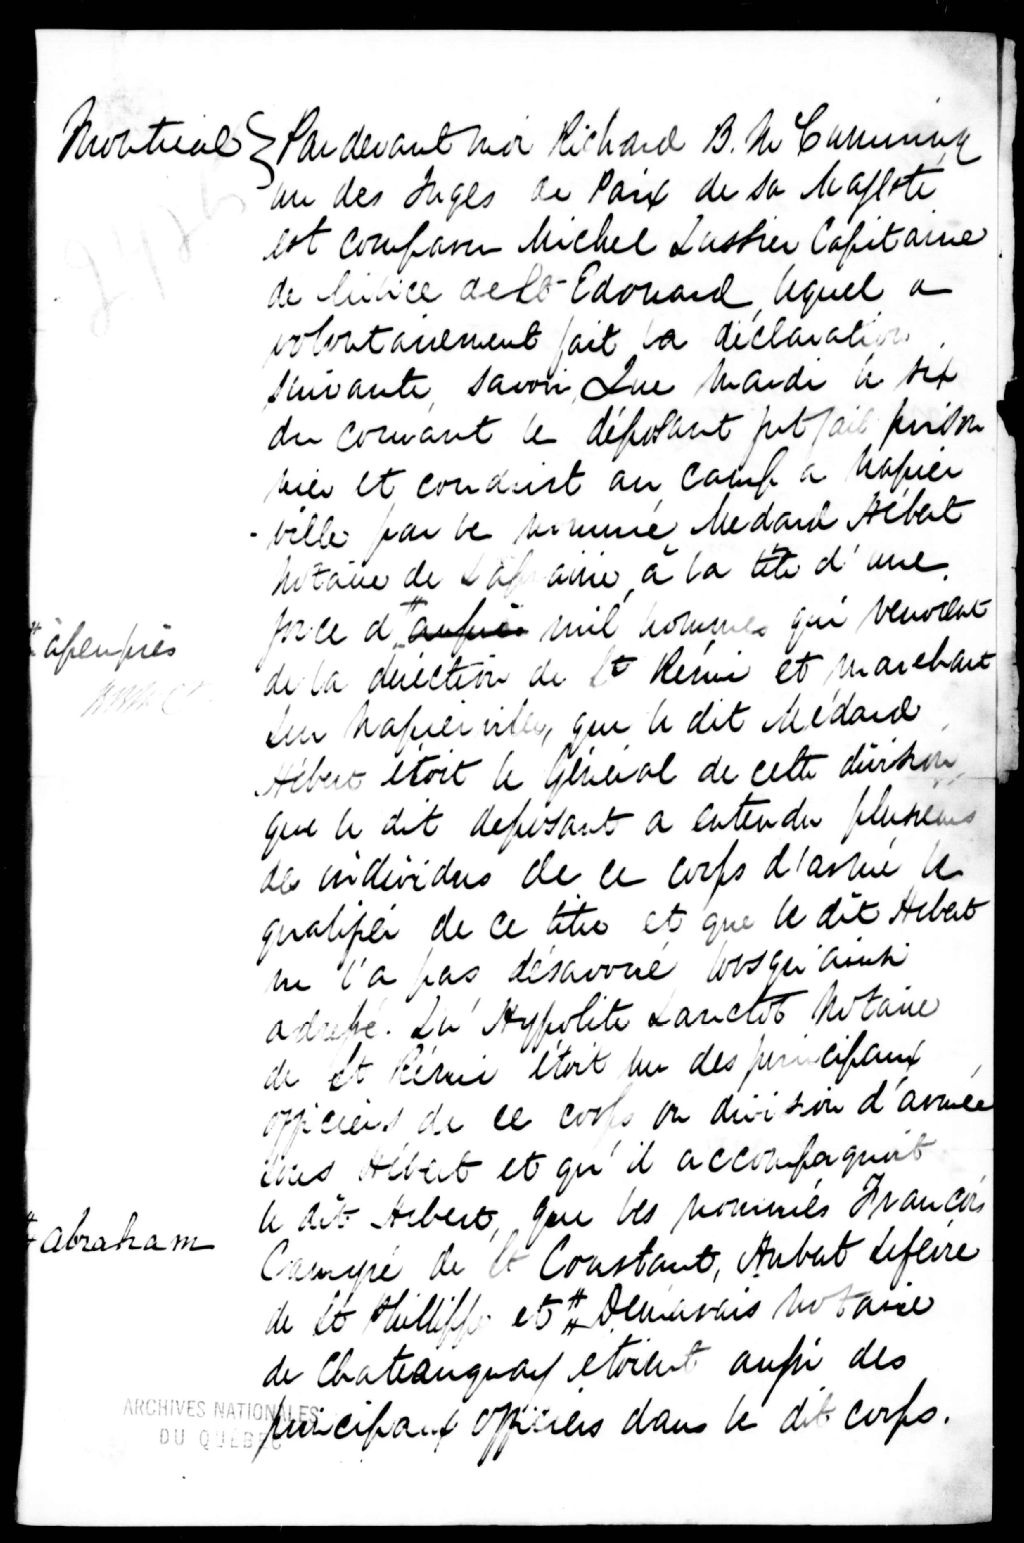 Montreal } Pardevant moi Richard B. McCumming
un des Juges de Paix de Sa Majesté
est comparu Michel Lussier Capitaine
de Milice de St Edouard, lequel a
volontairement fait la déclaration
suivante, savoir, Que Mardi le six
du courant le déposant fut fait prison
nier et conduit au camp a Napier
- ville par le nommé Medard Hébert
Notaire de Laprairie, à la tête d'une
force d' # auprès mil hommes qui venoient
# àpeuprès
de la direction de St Rémi et marchant
sur Napierville, que le dit Médard
Hébert étoit le Général de cette division,
que le dit deposant a entendu plusieurs
des individus de ce corps d'armé le
qualifier de ce titre et que le dit Hebert
ne l'a pas désavoué lorsqu'ainsi
adressé. Qu'Hypolite Lanctôt Notaire
de St Rémi étoit un des principaux
officiers de ce corps ou division d'armée
sous Hébert et qu'il accompagnoit
le dit Hebert, que les nommés François
# abraham
Camyré de St Constant, Hubert Lefèvre
de St Phillippe et # Demarais Notaire
de Chateauguay etoient aussi des
principaux officiers dans le dit corps.
ARCHIVES NATIONALES
DU QUÉBEC